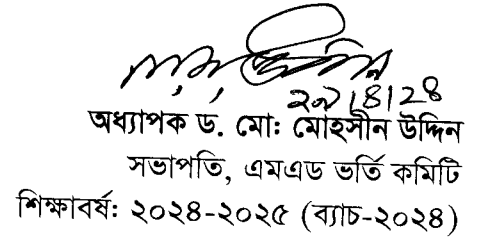 অধ্যাপক ড. মো: মোহসীন উদ্দিন
সভাপতি, এমএড ভর্তি কমিটি
শিক্ষাবর্ষ: ২০২৪-২০২৫ (ব্যাচ-২০২৪)